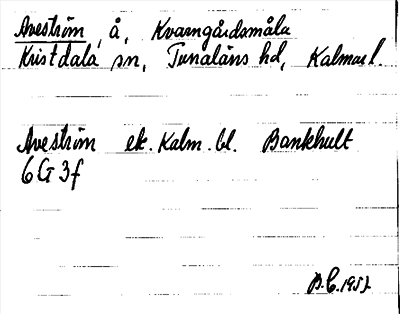 Aveström, å, Kvarngårdsmåla
Kristdala sn, Tunaläns hd, Kalmar l.
Aveström ek. Kalm. bl. Bankhult
6G3f
B.C. 1957